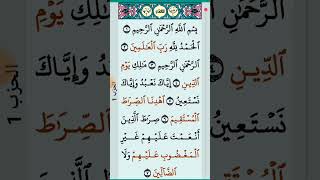 بِسْمِ ٱللَّهِ ٱلرَّحْمَٰنِ ٱلرَّحِيمِ
ٱلْحَمْدُ لِلَّهِ رَبِّ ٱلْعَٰلَمِينَ
ٱلرَّحْمَٰنِ ٱلرَّحِيمِ مَٰلِكِ يَوْمِ
ٱلدِّينِ إِيَّاكَ نَعْبُدُ وَإِيَّاكَ
نَسْتَعِينُ ٱهْدِنَا ٱلصِّرَٰطَ
ٱلْمُسْتَقِيمَ صِرَٰطَ ٱلَّذِينَ
أَنْعَمْتَ عَلَيْهِمْ غَيْرِ
ٱلْمَغْضُوبِ عَلَيْهِمْ وَلَا
ٱلضَّآلِّينَ
الحزب 1